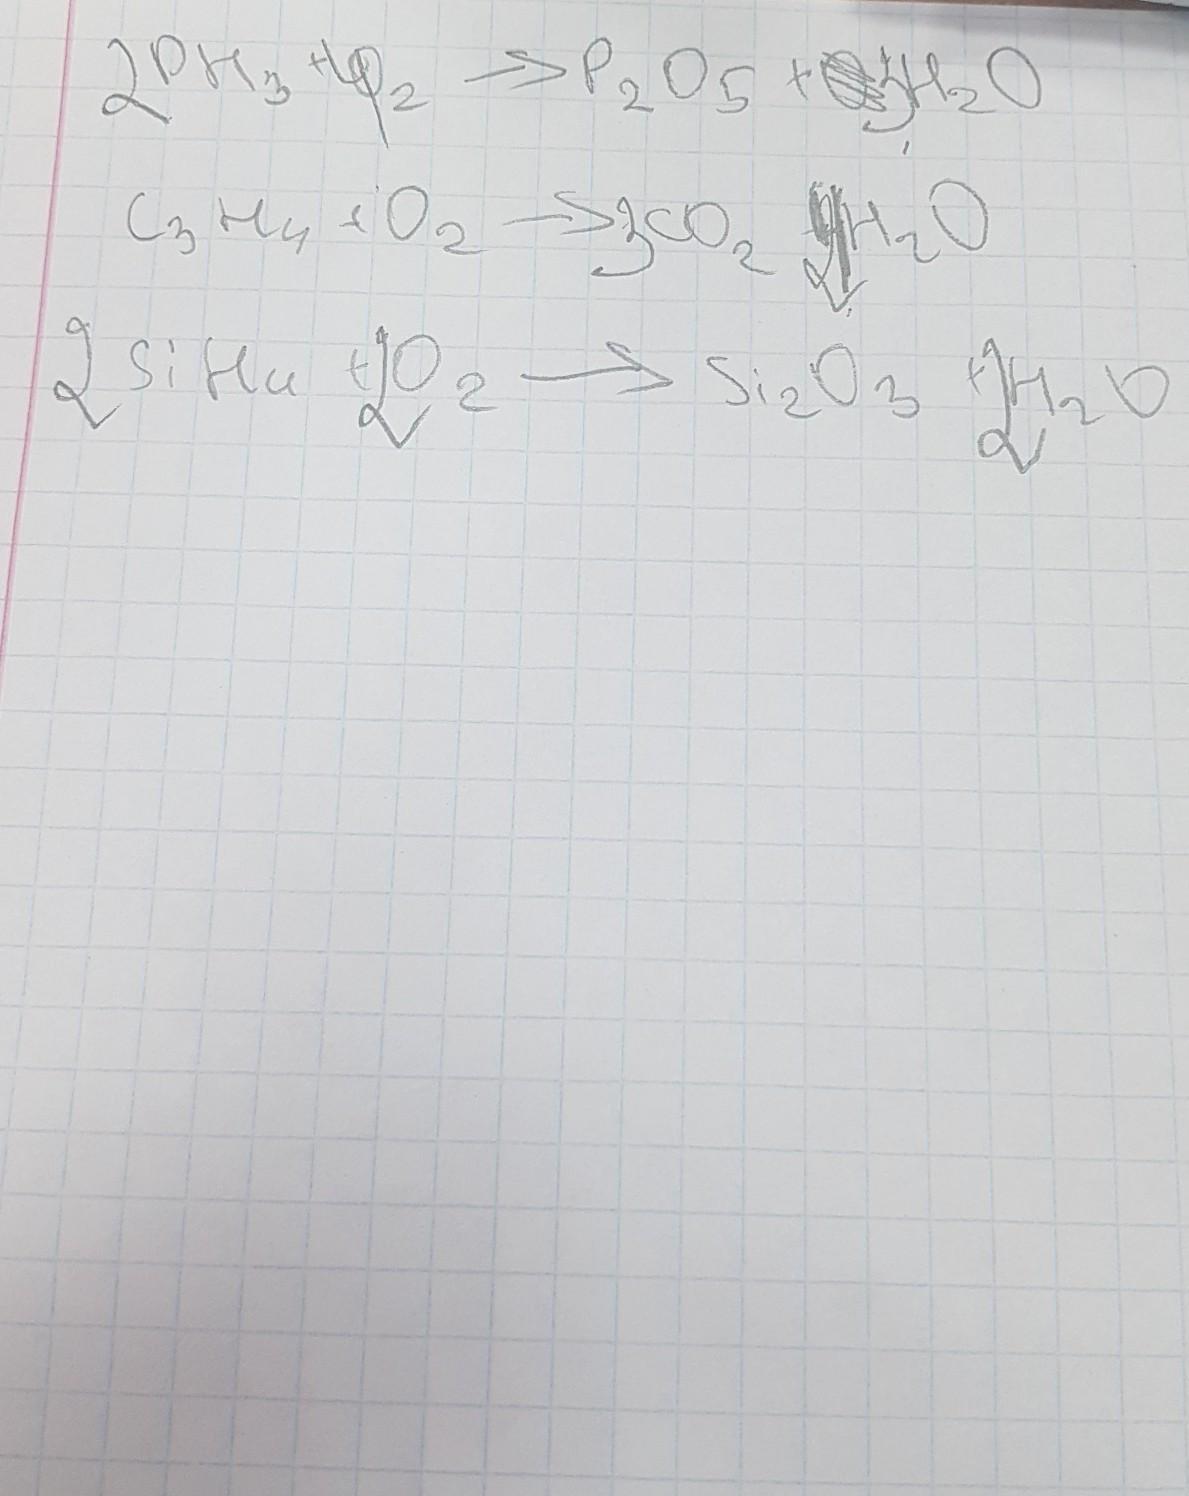 2PH3 + 4O2 → P2O5 + 3H2O
C3H4 + O2 → 3CO2 2H2O
2SiH4 + 2O2 → Si2O3 + 2H2O